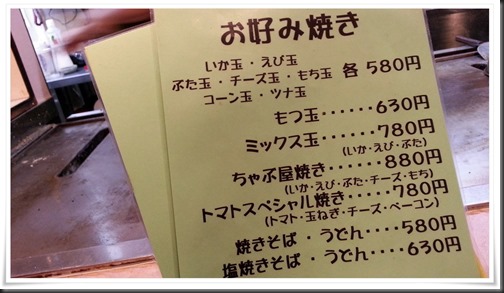 お好み焼き
いか玉・えび玉
ぶた玉・チーズ玉・もち玉 各580円
コーン玉・ツナ玉
もつ玉・・・・・・630円
ミックス玉・・・・・・780円
(いか・えび・ぶた)
ちゃぶ屋焼き・・・・・・880円
(いか・えび・ぶた・チーズ・もち)
トマトスペシャル焼き・・・・・780円
(トマト・玉ねぎ・チーズ・ベーコン)
焼きそば・うどん・・・・580円
塩焼きそば・うどん・・・・630円